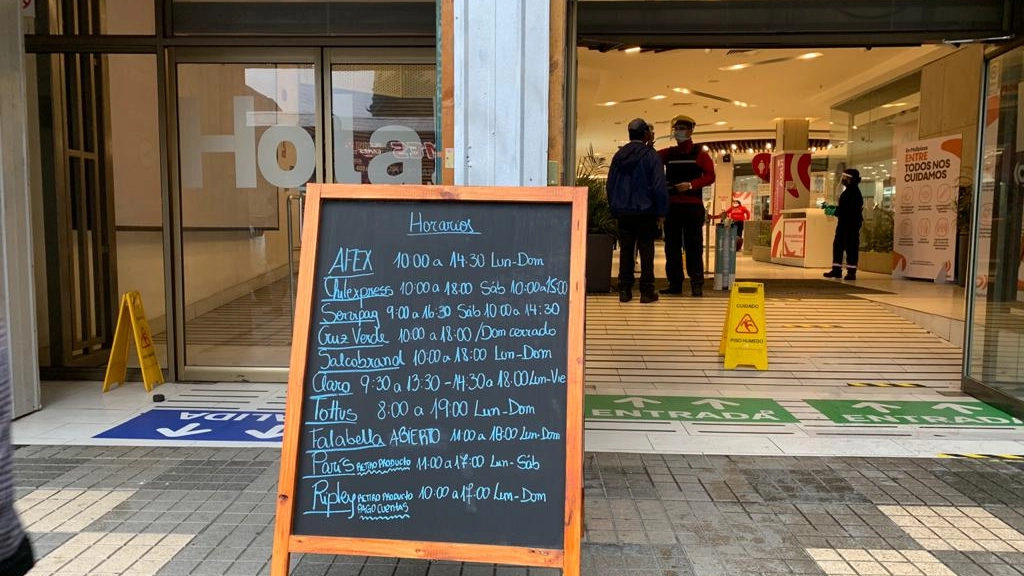 Hola
Horarios
AFEX 10:00 a 14:30 Lun-Dom
Chilexpress 10:00 a 18:00 Sáb 10:00 a 15:00
Servipag 9:00 a 16:30 Sáb 10:00 a 14:30
Cruz Verde 10:00 a 18:00 / Dom cerrado
Salcobrand 10:00 a 18:00 Lun-Dom
Claro 9:30 a 13:30 - 14:30 a 18:00 Lun-Vie
Tottus 8:00 a 19:00 Lun-Dom
Falabella ABIERTO 11:00 a 18:00 Lun-Dom
París RETIRO PRODUCTO 11:00 a 17:00 Lun-Sáb
Ripley RETIRO PRODUCTO 10:00 a 17:00 Lun-Dom
PAGO CUENTAS
En Mallplaza
ENTRE
TODOS NOS
CUIDAMOS
CUIDADO
PISO HUMEDO
SALIDA
ENTRADA
ENTRADA